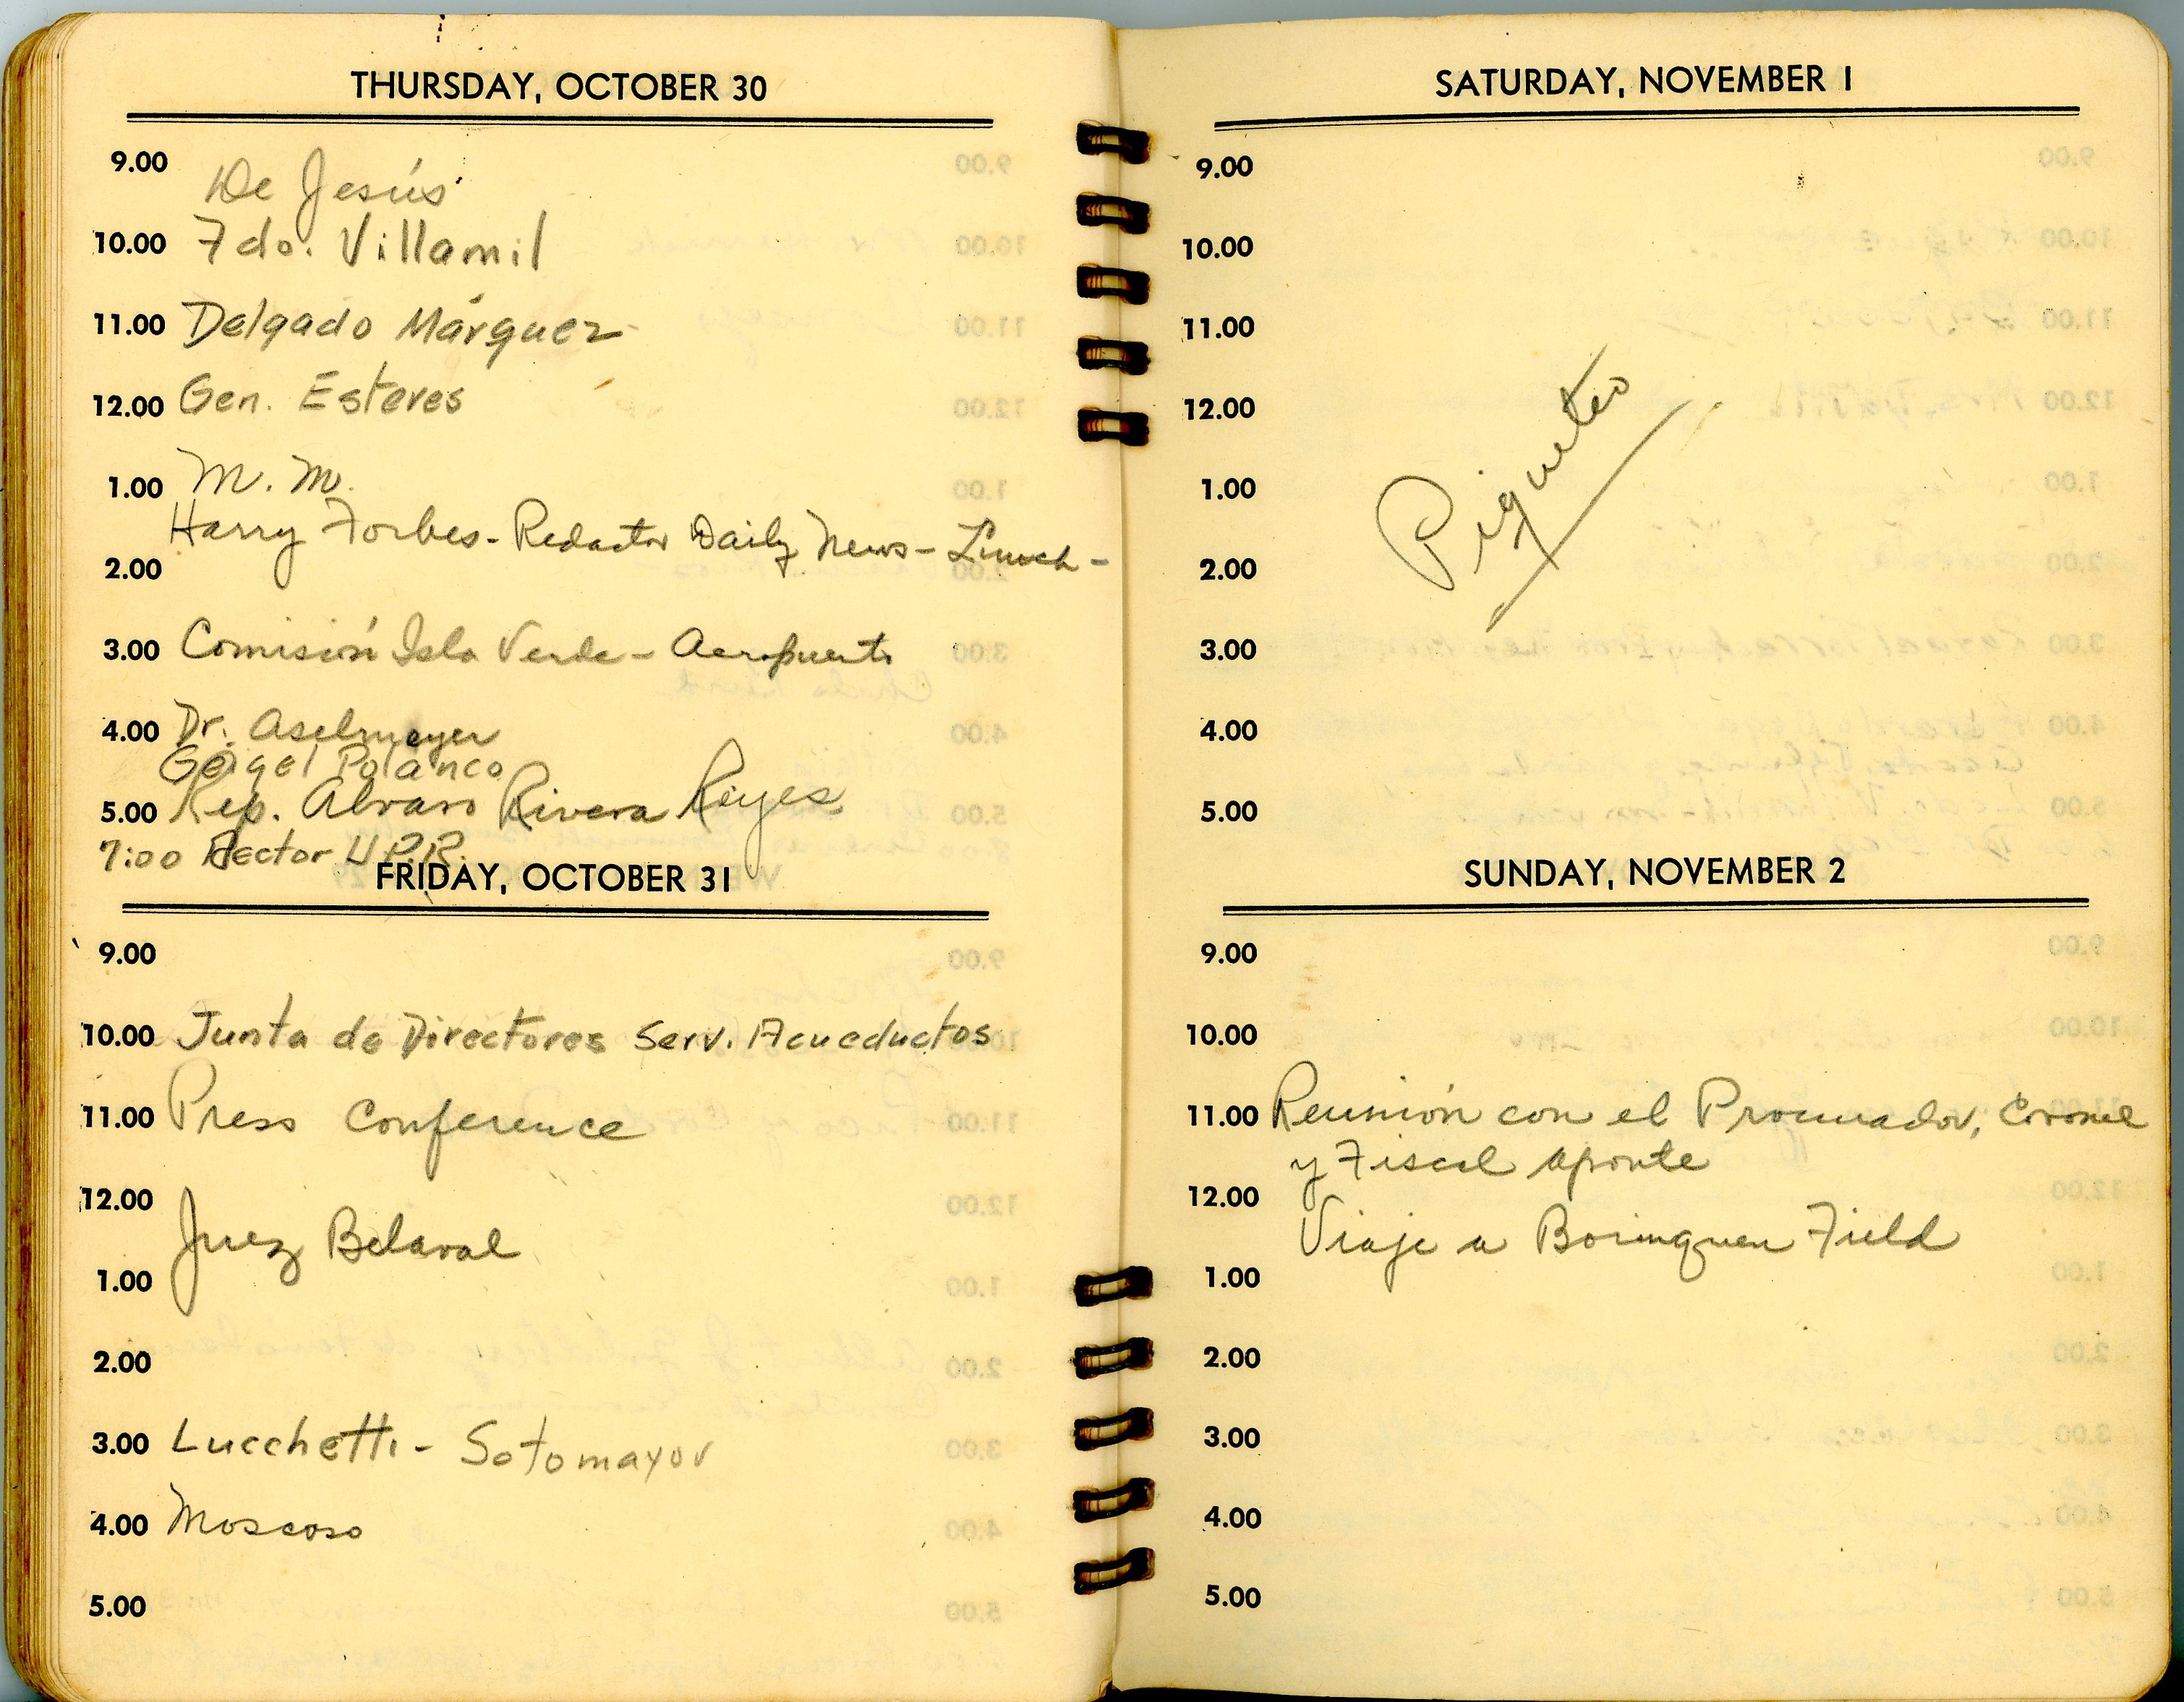 THURSDAY, OCTOBER 30
9.00
De Jesús
10.00 Fdo. Villamil
11.00 Delgado Márquez
12.00 Gen. Esteves
1.00 M. M.
Harry Forbes - Redactor Daily News - Lunch -
2.00
3.00 Comisión Isla Verde - Aeropuerto
4.00 Dr. Aselmeyer
Geigel Polanco
5.00 Rep. Alvaro Rivera Reyes
7:00 Rector U.P.R.
FRIDAY, OCTOBER 31
9.00
10.00 Junta de Directores Serv. Acueductos
11.00 Press Conference
12.00
Juez Belaval
1.00
2.00
3.00 Lucchetti - Sotomayor
4.00 Moscoso
5.00
SATURDAY, NOVEMBER 1
9.00
10.00
11.00
12.00
Piqueteo
1.00
2.00
3.00
4.00
5.00
SUNDAY, NOVEMBER 2
9.00
10.00
11.00 Reunión con el Procurador, Coronel
y Fiscal Aponte
12.00
Viaje a Borinquen Field
1.00
2.00
3.00
4.00
5.00